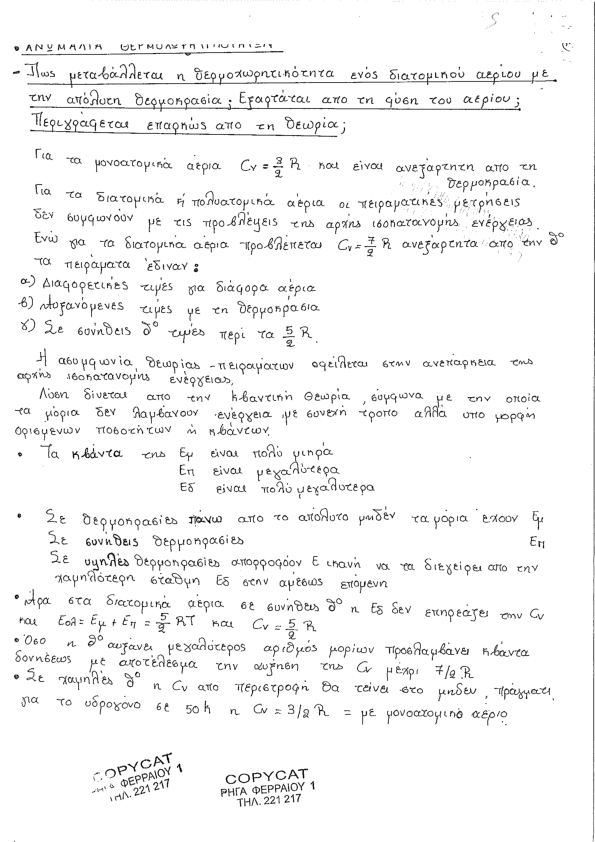 5
• ΑΝΩΜΑΛΙΑ ΘΕΡΜΟΧΩΡΗΤΙΚΟΤΗΤΩΝ
- Πως μεταβάλλεται η θερμοχωρητικότητα ενός διατομικού αερίου με
την απόλυτη θερμοκρασία; Εξαρτάται απο τη φύση του αερίου;
Περιγράφεται επαρκώς απο τη θεωρία;
Για τα μονοατομικά αέρια Cv = 3/2 R και είναι ανεξάρτητη απο τη
θερμοκρασία.
Για τα διατομικά ή πολυατομικά αέρια οι πειραματικές μετρήσεις
δεν συμφωνούν με τις προβλέψεις της αρχής ισοκατανομής ενέργειας.
Ενώ για τα διατομικά αέρια προβλέπεται Cv = 7/2 R ανεξάρτητα απο την θ°
τα πειράματα έδιναν :
α) Διαφορετικές τιμές για διάφορα αέρια
β) Αυξανόμενες τιμές με τη θερμοκρασία
γ) Σε συνήθεις θ° τιμές περί τα 5/2 R.
Η ασυμφωνία θεωρίας - πειραμάτων οφείλεται στην ανεπάρκεια της
αρχής ισοκατανομής ενέργειας.
Λύση δίνεται απο την κβαντική θεωρία, σύμφωνα με την οποία
τα μόρια δεν λαμβάνουν ενέργεια με συνεχή τροπο αλλά υπο μορφή
ορισμένων ποσοτήτων ή κβάντων.
• Τα κβάντα της Εμ είναι πολύ μικρά
Επ είναι μεγαλύτερα
Εδ είναι πολύ μεγαλύτερα
• Σε θερμοκρασίες πάνω απο το απόλυτο μηδέν τα μόρια έχουν Εμ
Σε συνήθεις θερμοκρασίες Επ
Σε υψηλές θερμοκρασίες απορροφούν Ε ικανή να τα διεγείρει απο την
χαμηλότερη στάθμη Εδ στην αμέσως επόμενη
• Άρα στα διατομικά αέρια σε συνήθεις θ° η Εδ δεν επηρεάζει την Cv
και Εολ = Εμ + Επ = 5/2 RT και Cv = 5/2 R
• Όσο η θ° αυξάνει μεγαλύτερος αριθμός μορίων προσλαμβάνει κβάντα
δονήσεως με αποτέλεσμα την αύξηση της Cv μέχρι 7/2 R
• Σε χαμηλές θ° η Cv απο περιστροφή θα τείνει στο μηδεν, πράγματι
για το υδρογόνο σε 50k η Cv = 3/2 R = με μονοατομικό αέριο
COPYCAT
ΡΗΓΑ ΦΕΡΡΑΙΟΥ 1
ΤΗΛ. 221 217
COPYCAT
ΡΗΓΑ ΦΕΡΡΑΙΟΥ 1
ΤΗΛ. 221 217